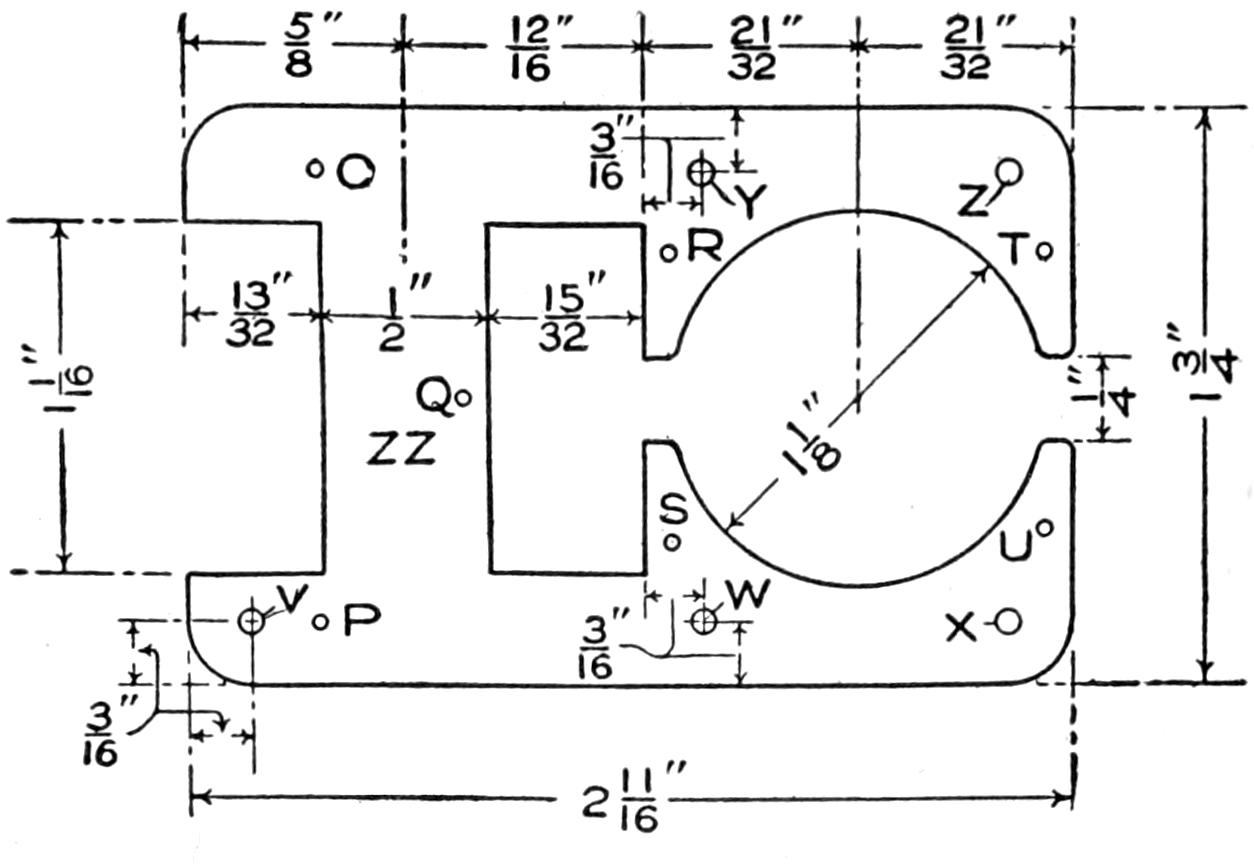 5/8"
12/16"
21/32"
21/32"
3/16"
O
Y
Z
R
T
13/32"
1/2"
15/32"
1 1/16"
1 3/4"
1/4"
Q
ZZ
1 1/8"
S
U
V
P
W
X
3/16"
3/16"
2 11/16"